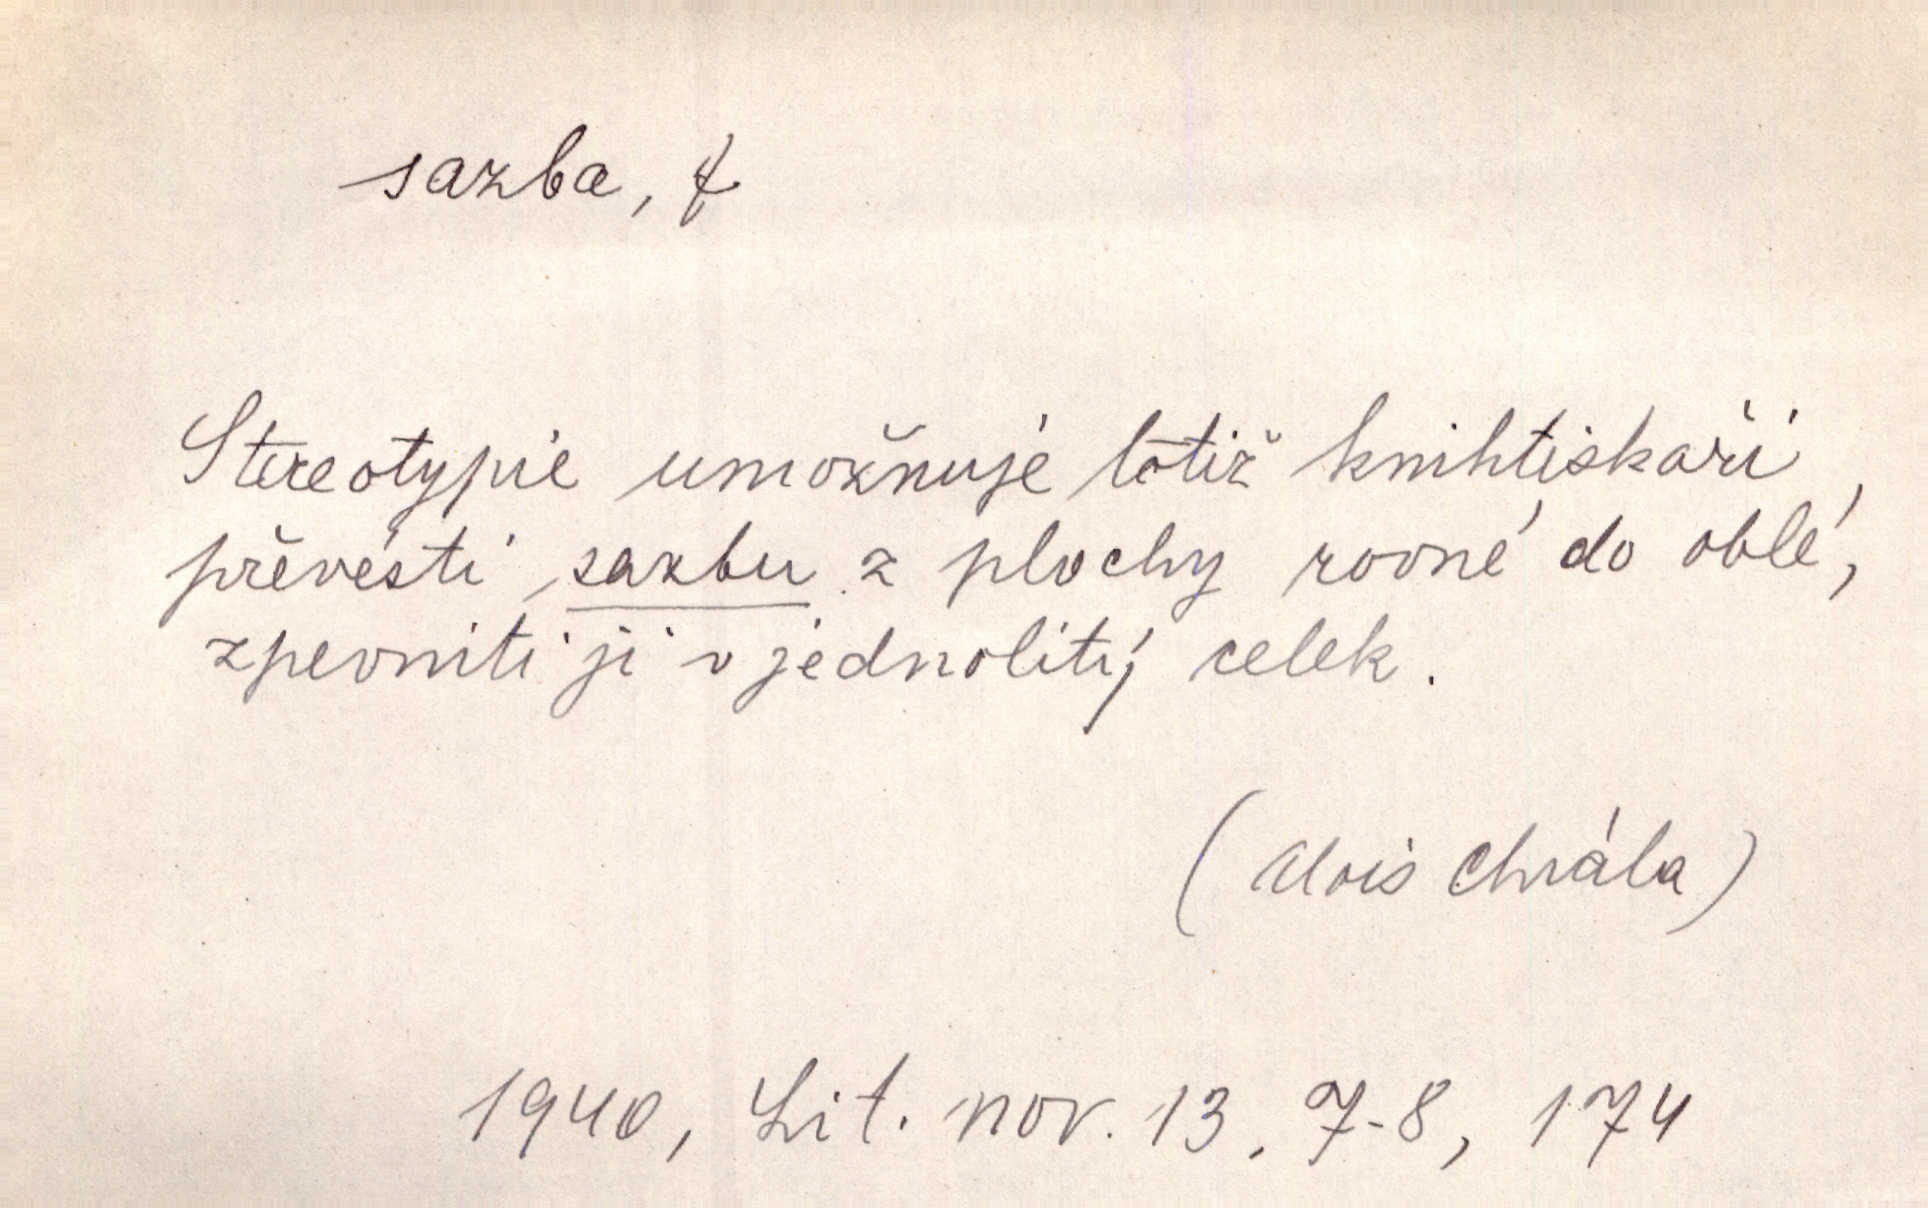 sazba, f
Stereotypie umožnuje totiž knihtiskaři,
převésti sazbu z plochy rovné do oblé,
zpevniti ji v jednolitý celek.
(Alois Chvála)
1940, Lit. nov. 13, 7-8, 174